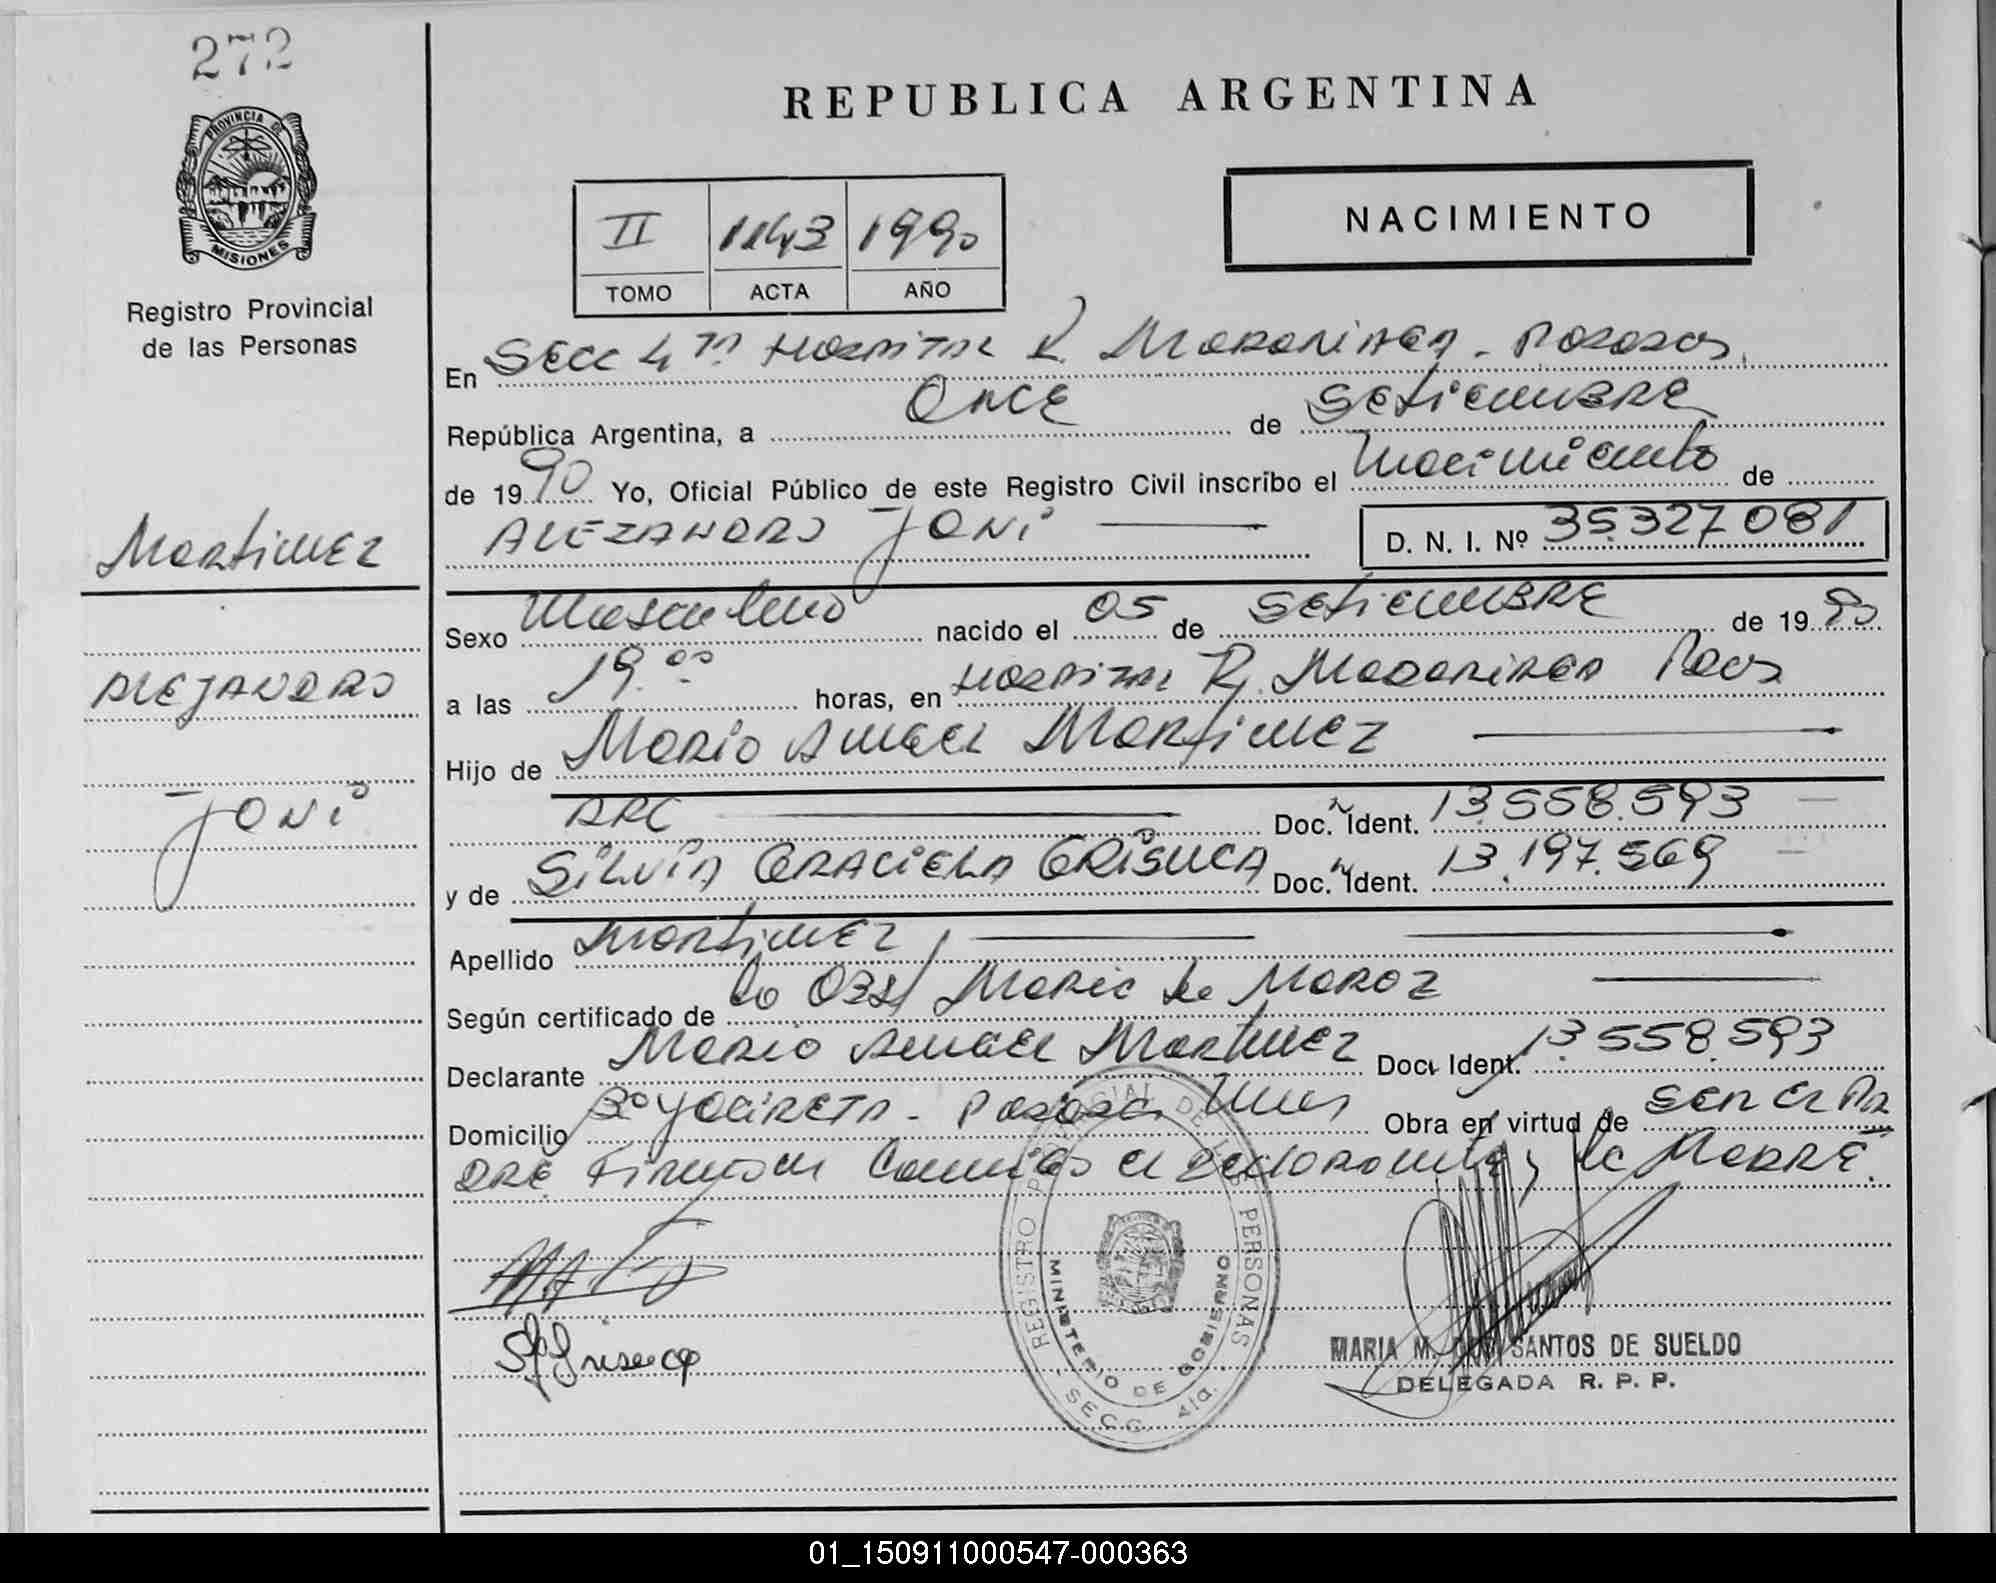 272
REPUBLICA ARGENTINA
PROVINCIA DE
MISIONES
Registro Provincial
de las Personas
II 1143 1990
TOMO ACTA AÑO
NACIMIENTO
En Secc 4ta Hospital R. Madariaga - Posadas,
República Argentina, a Once de Setiembre
de 1990 Yo, Oficial Público de este Registro Civil inscribo el Nacimiento de
ALEZANDRO JONi D. N. I. Nº 35.327 081
Martinez
Sexo Masculino nacido el 05 de SEtiEMBRE de 1990
ALEJANDRO
a las 19.00 horas, en Hospital R. Madariaga Pdas
Hijo de Mario Angel Martinez
JONi
ARG Doc. Ident. 13.558.593
y de SiLViA GRACiELA GRiSUCA Doc. Ident. 13.197.569
Apellido Martinez
Según certificado de la Obst Maria de Moroz
Declarante Mario Angel Martinez Doc. Ident. 13.558.593
Domicilio Bº Yacireta - Posadas Mnes Obra en virtud de SER EL PA
DRE. Firman Comigo el Declarante y la MADRE.
REGISTRO PROVINCIAL DE LAS PERSONAS
MINISTERIO DE GOBIERNO
SECC. 4ta.
MARIA M. DOS SANTOS DE SUELDO
DELEGADA R. P. P.
01_150911000547-000363